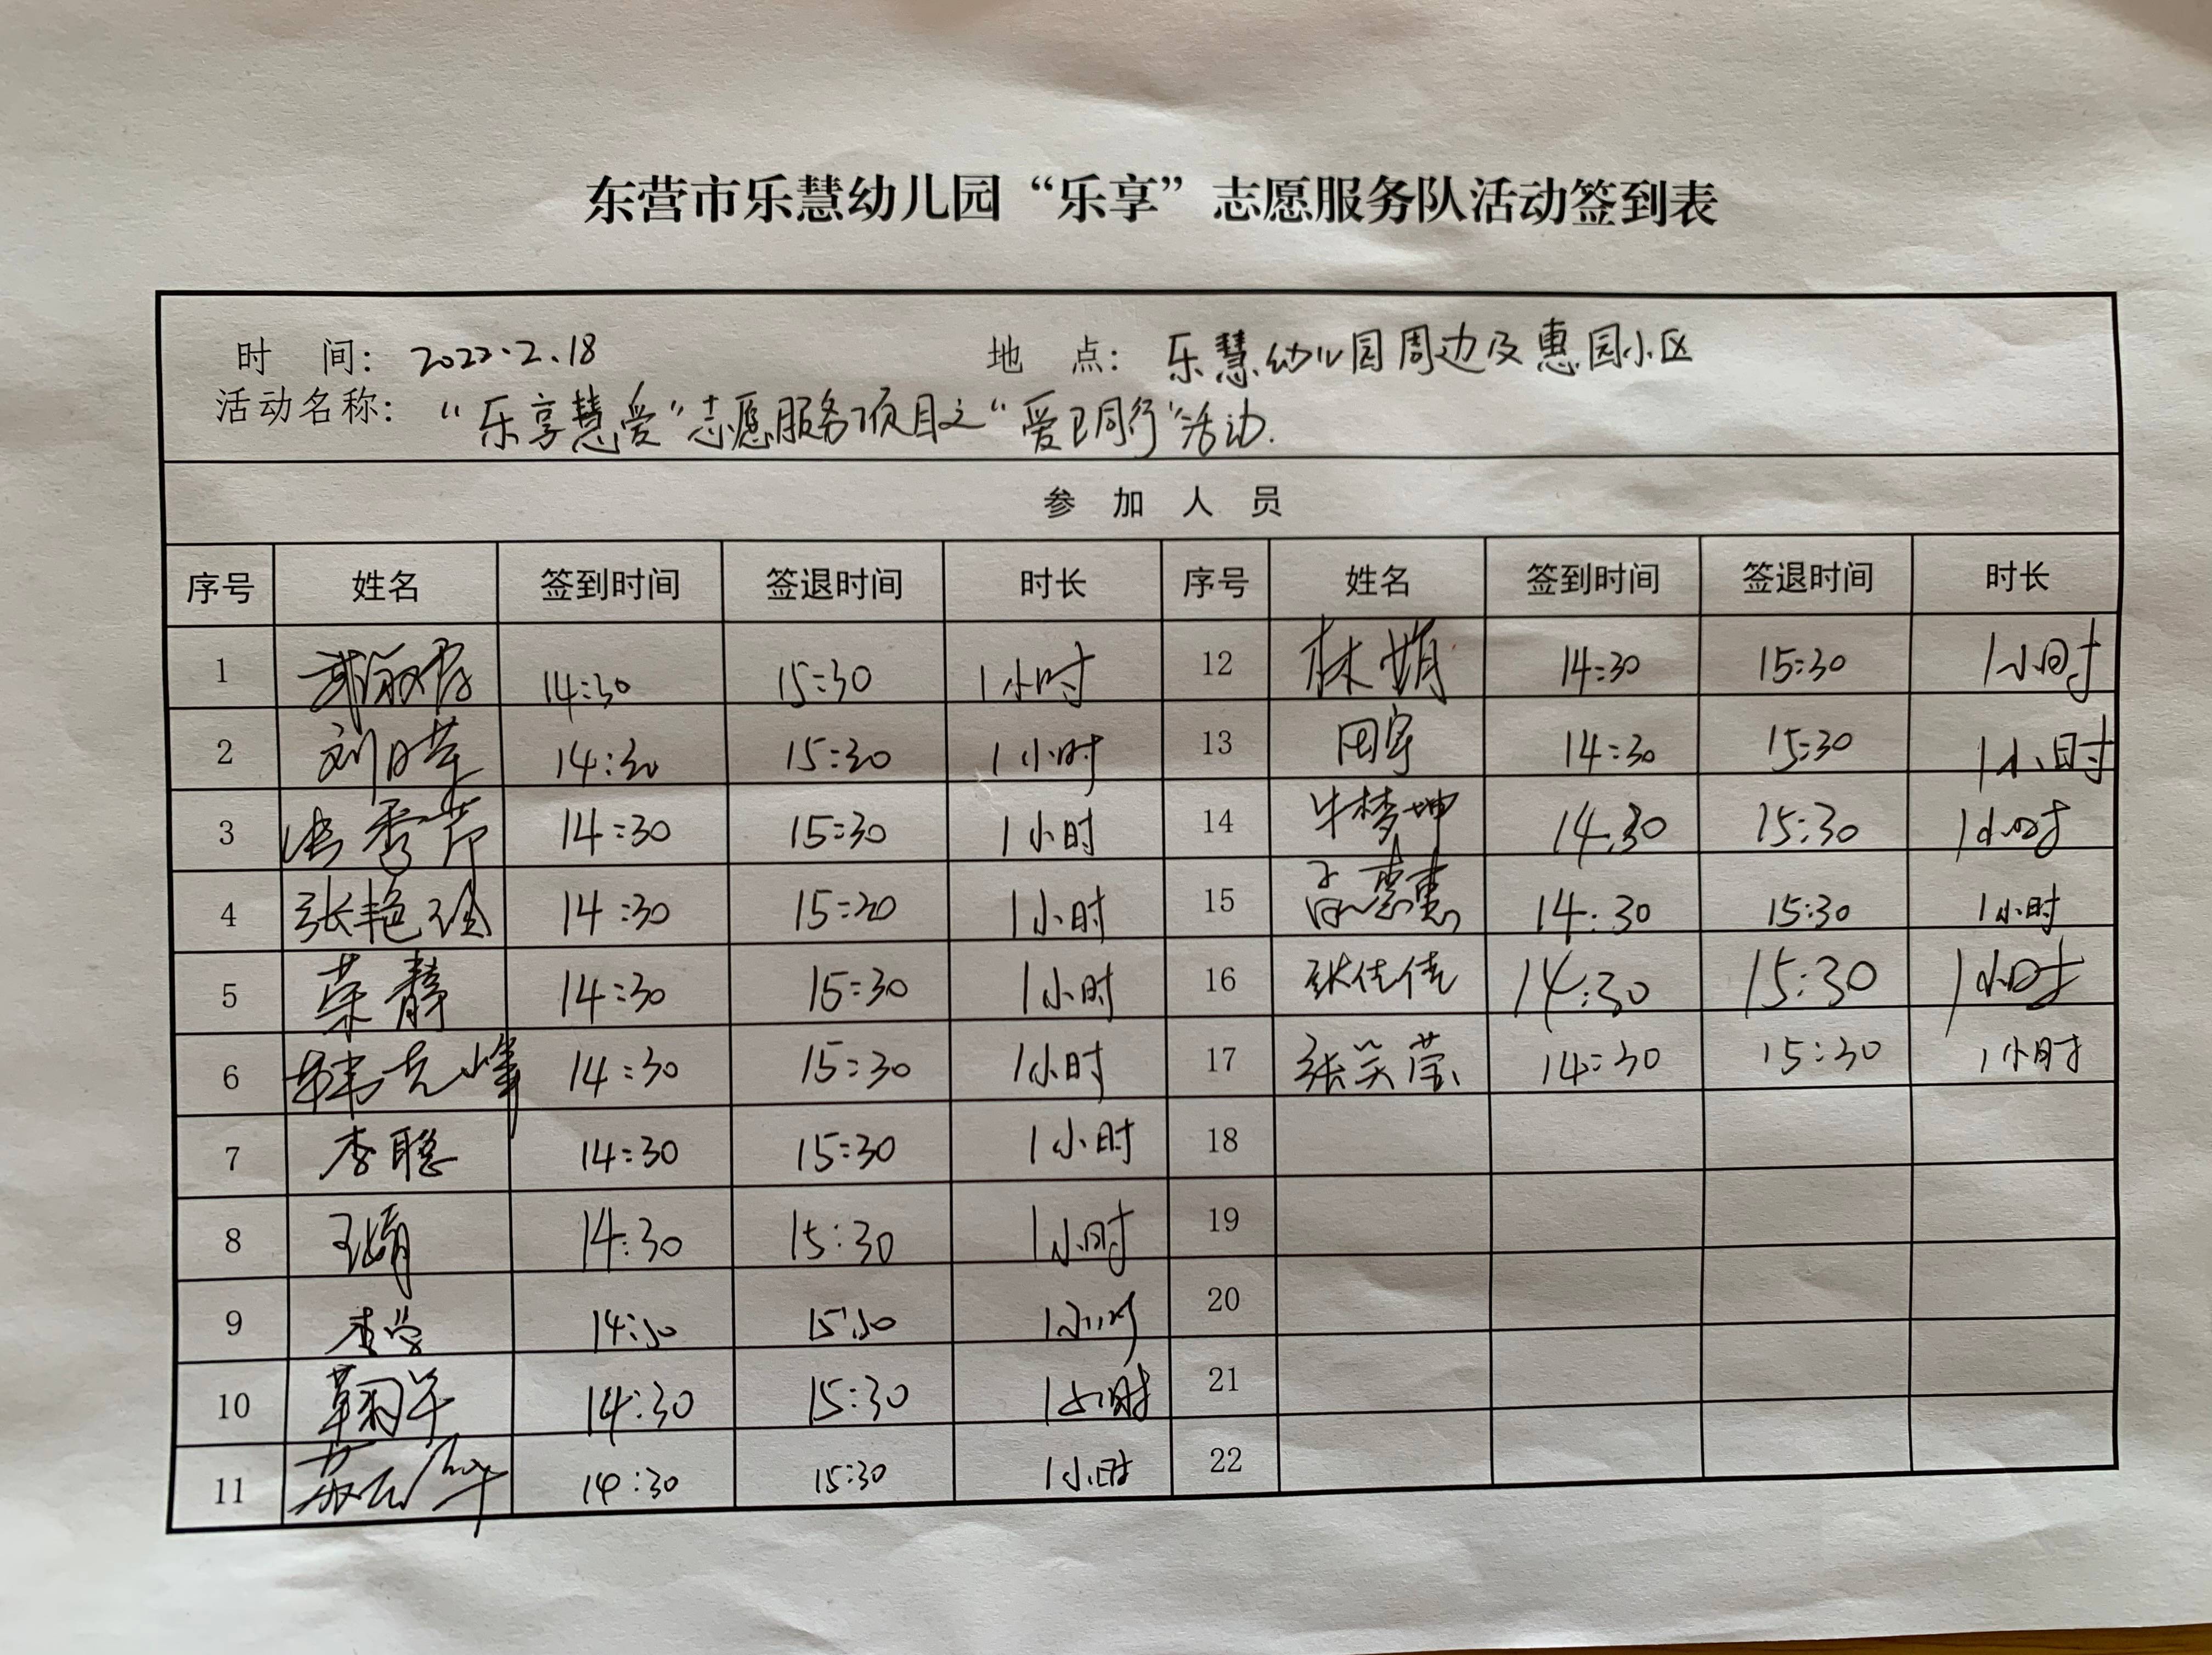 东营市乐慧幼儿园“乐享”志愿服务队活动签到表
时 间： 2022.2.18 地 点： 乐慧幼儿园周边及惠园小区
活动名称： “乐享慧爱”志愿服务项目之“爱卫同行”活动.
参 加 人 员
序号 姓名 签到时间 签退时间 时长 序号 姓名 签到时间 签退时间 时长
1 14:30 15:30 1小时 12 林娟 14:30 15:30 1小时
2 刘晓苹 14:30 15:30 1小时 13 田宇 14:30 15:30 1小时
3 秀芹 14:30 15:30 1小时 14 牛梦坤 14.30 15:30 1小时
4 张艳 14:30 15:30 1小时 15 14:30 15:30 1小时
5 荣静 14:30 15:30 1小时 16 张佳佳 14:30 15:30 1小时
6 韩克峰 14:30 15:30 1小时 17 张笑莹 14:30 15:30 1小时
7 李聪 14:30 15:30 1小时 18
8 王娟 14:30 15:30 1小时 19
9 李 14:30 15:30 1小时 20
10 14:30 15:30 1小时 21
11 14:30 15:30 1小时 22